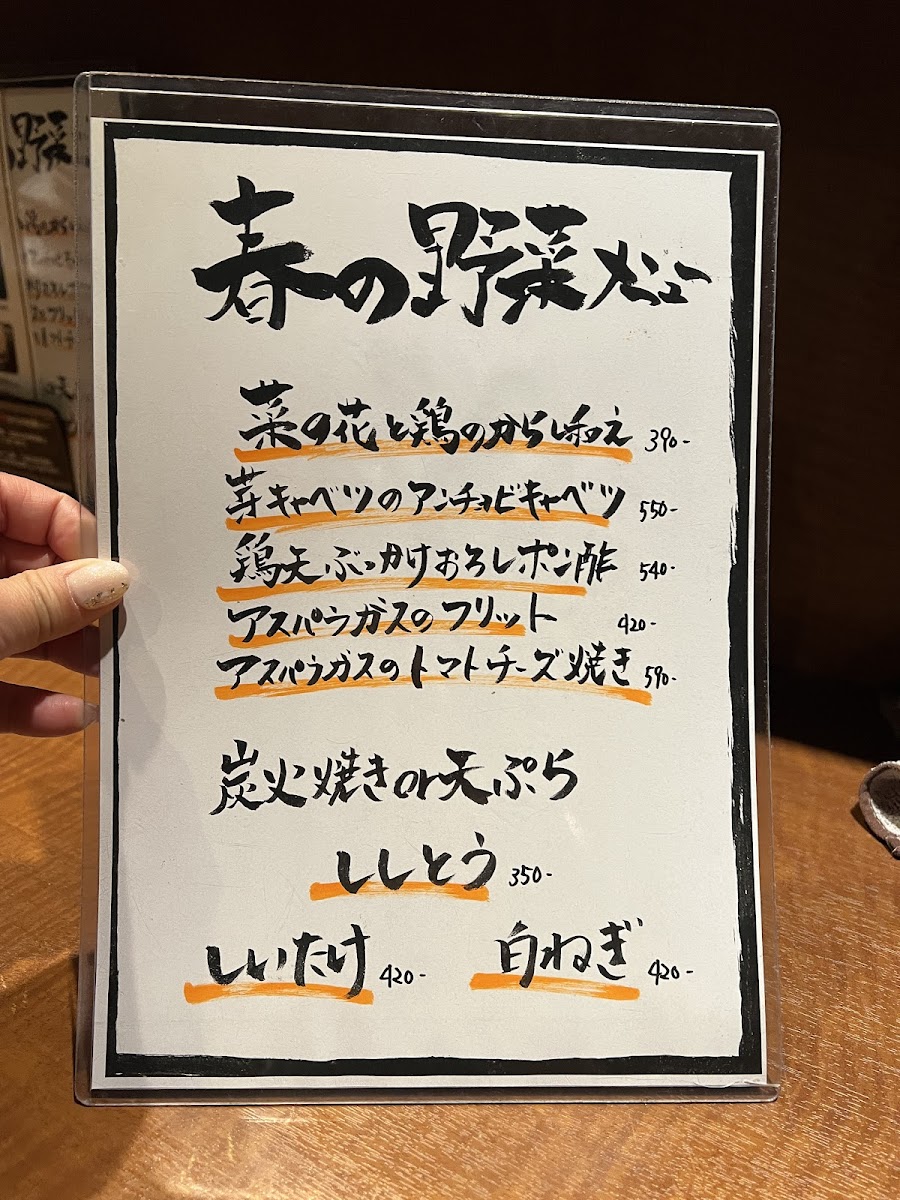 春の野菜メニュー
菜の花と鶏のからし和え 390-
芽キャベツのアンチョビキャベツ 550-
鶏天ぶっかけおろしポン酢 540-
アスパラガスのフリット 420-
アスパラガスのトマトチーズ焼き 590-
炭火焼きor天ぷら
ししとう 350-
しいたけ 420- 白ねぎ 420-
野菜